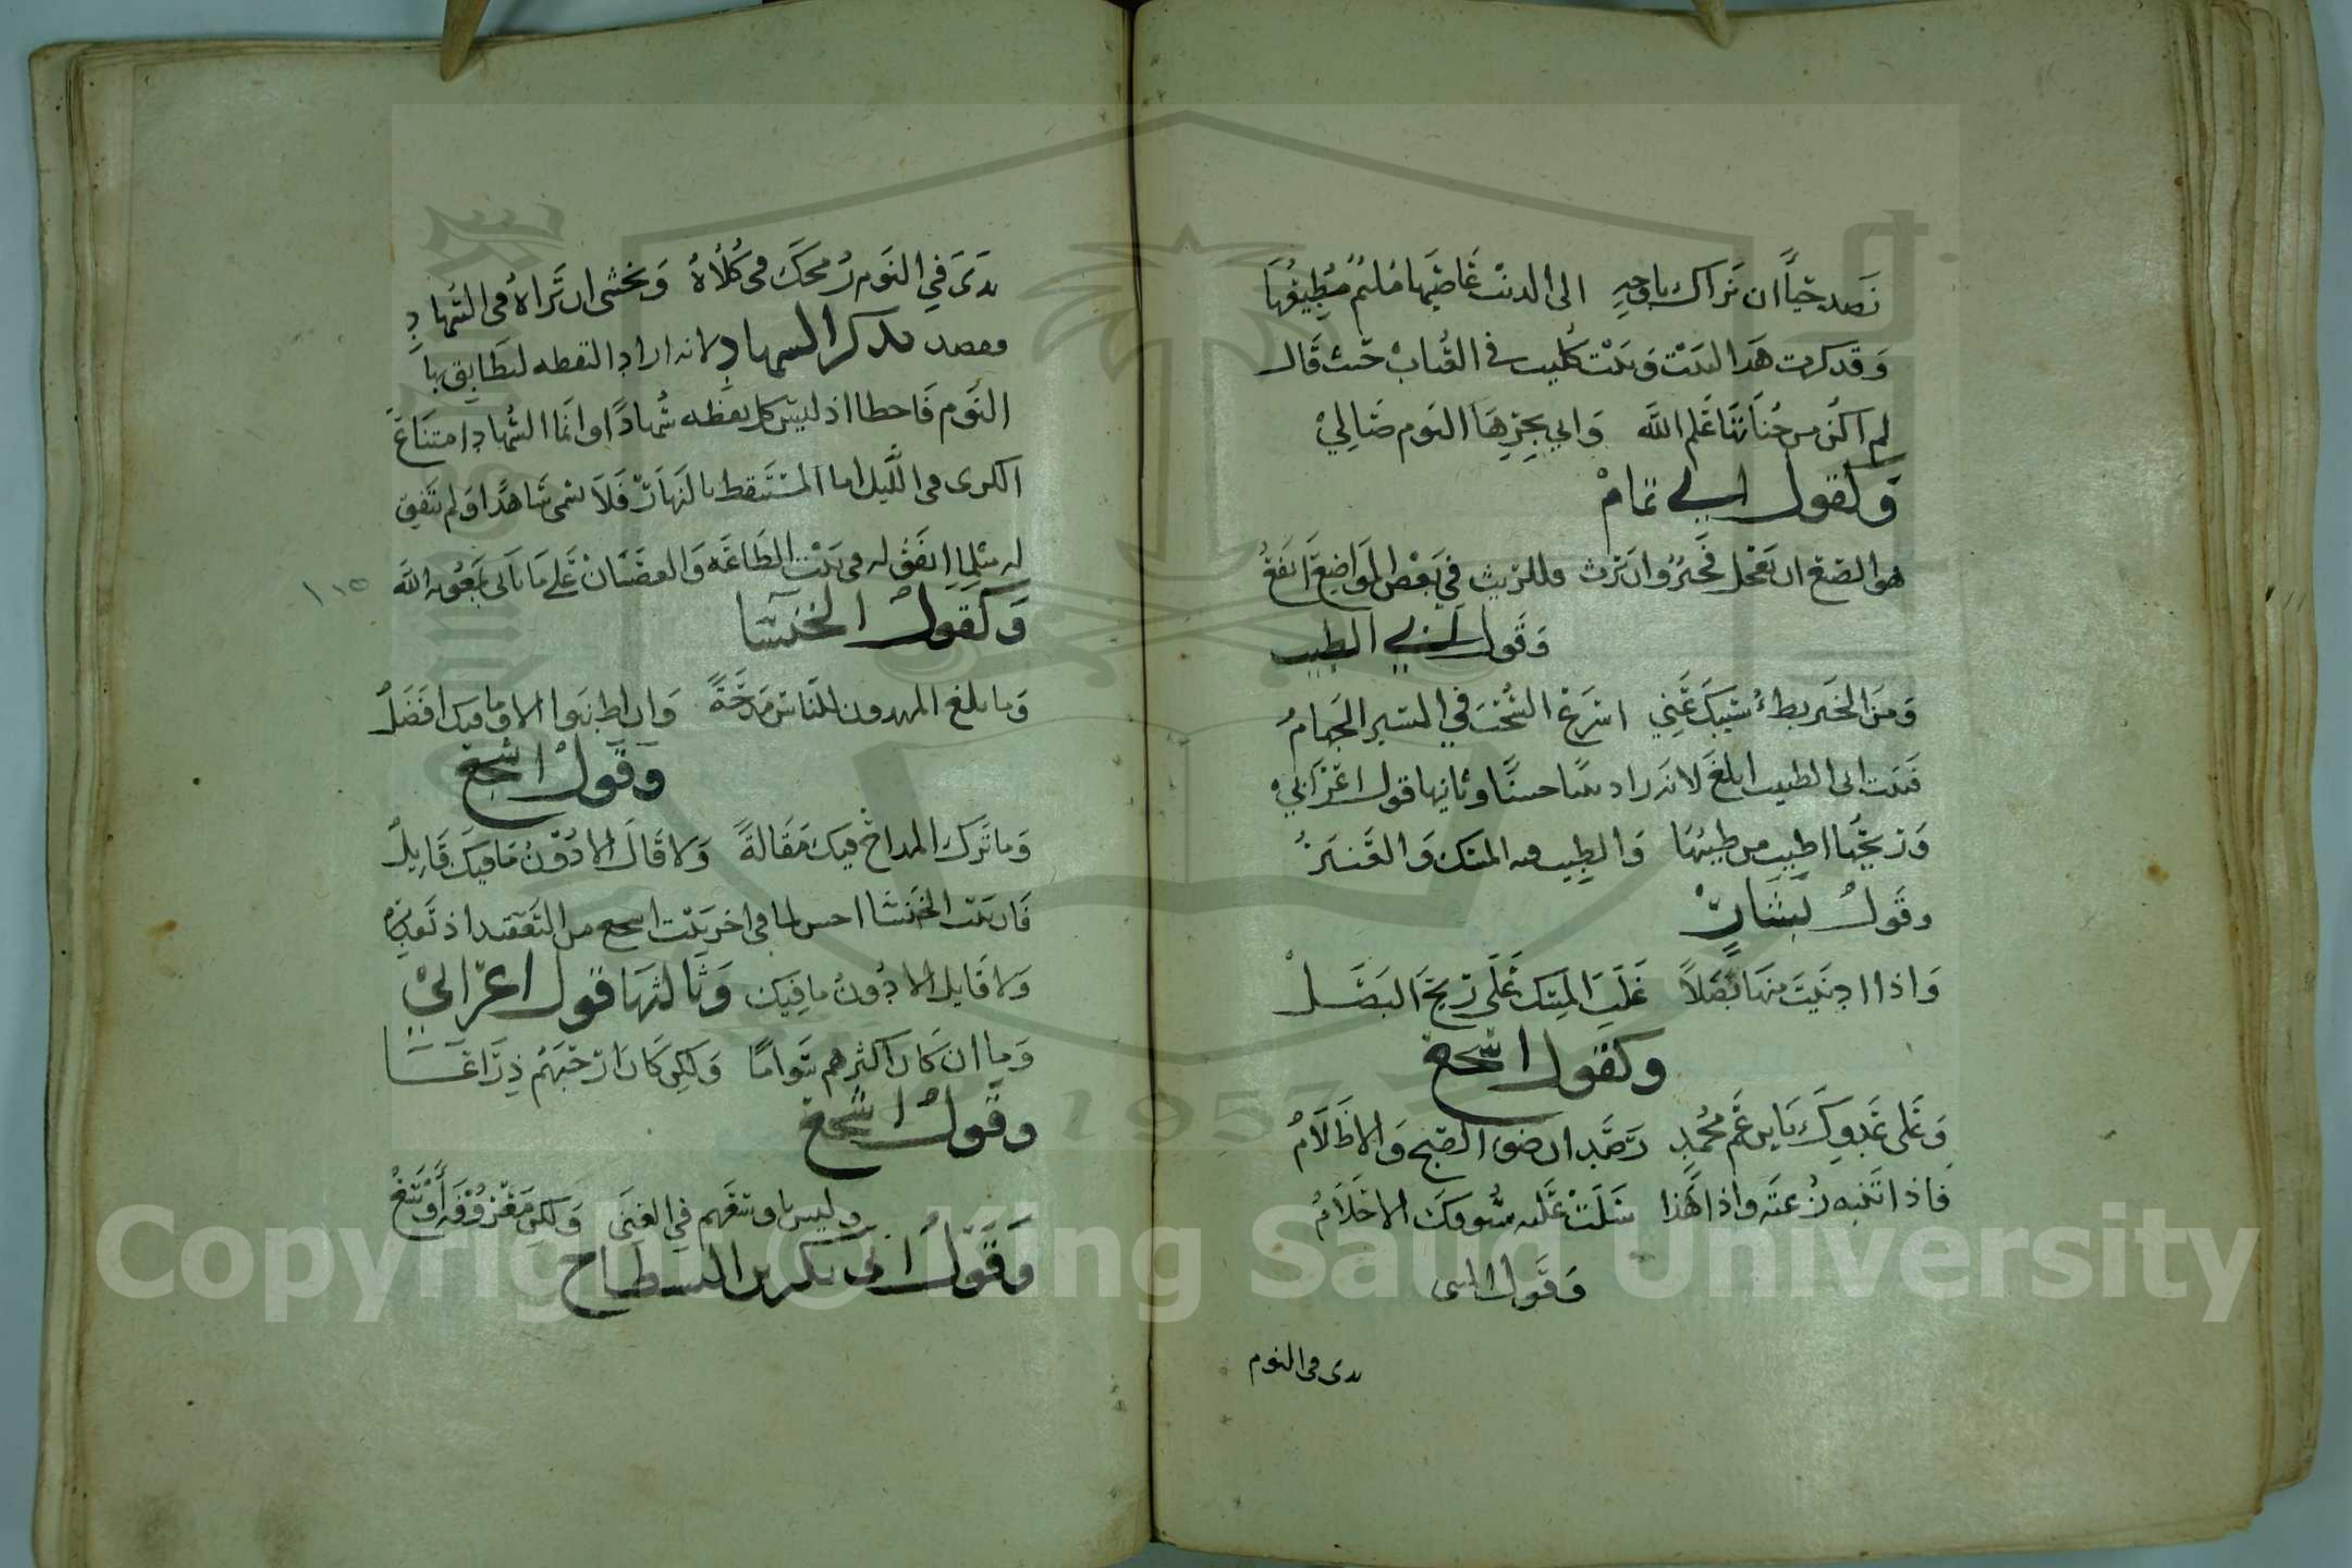 نَصد حَيَاًَ ان تَراك باوجهٍ الى الدنب عَاصيها مُليم مُطِيعُهَا
وَقد كرت هَذا البَيْت وَبَيْت كُليب فى القُباب حَيث قَال
لم اكُن من جُناتها عَلم اللهَ وَانى بحِرِّهَا اليَوم صَالِيْ
وَكقول ابي تمامْ
هو الصنع ان يَعْجل فَخيرٌ وان يَرث فللريث في بَعْض المَواضِع اَنفَعُ
وَقَول ابي الطيب
وَمنَ الخَير بطءُ سَيبكَ عَنِّي اسْرَعُ السُّحْب في المسَير الجَهامُ
فَبيت ابى الطيب ابلغَ لانه زاد حسنًا وثانيها قول اعْرَابي
وَريحُها اطيب من طيبهَا وَالطيب فيه المسْك وَالعَنبَرُ
وقَولُ بَشارٍ
وَاذا ادنَيتَ منهَا بَصَلاً غَلَبَ المِسْك عَلَى ريحَ البَصَلْ
وكقول اشجع
وَعَلى عَدوِكَ يَابن عَم مُحمدٍ رَصَدان ضوء الصبح وَالاظَلَامُ
فاذا تَنبه رُعتَه واذا هَذا سَلَتْ عَلَيه سُيُوفكَ الاحْلَامُ
وَقَول المتنبى
يرى فى النوم
يَرىَ فيِ النَوم رُمحكَ فى كُلَاهُ وَيَخشى ان يَرَاهُ فى السُهادِ
فقصد بذكر السهاد لانه اراد اليقظه ليطَابق بها
النَوم فَاخطا اذ ليسَ كل يقظه سُهادًا وانمَا السُهاد امتنَاعَ
الكرى فى اللَّيل اما المسْتَيقظ بالنهَار فَلَا يسمى سَاهدًا وَلم يَتفِق
له مثلما اتفَق له فى بَيْت الطَاعَه وَالعصْيَانْ عَلَے مَا يَاتى بمَعُونة اللهَ
١١٥
وَكقولُ الخنسَا
وَما بلغ المهدون للنَاس مَدحَةً وَان اطنَبوا الا وما فيك افضَلُ
وَقَولُ اشجع
وَما تَرَك المداحُ فيك مَقَالةً وَلا قَالَ الا دُونُ مَا فيكَ قَايِلُ
فَان بَيت الخَنسَا احسن لما فى اخر بَيْت اشجع من التَعقيد اذ تَقديرُه
وَلا قَايل الا دُونُ مَا فِيك وَثَالثهَا قول اعْرَابيْ
وَما ان كَان اكثرهم سَوامًا وَلَكِن كَان ارْحَبَهُم ذِرَاعَا
وقَولُ اشجع
وليس باوسَعَهم في الغنَى وَلكِن مَعْرُوفَهُ اَوْسَعُ
وَقَوْلُ ابى بكر بن النطاح